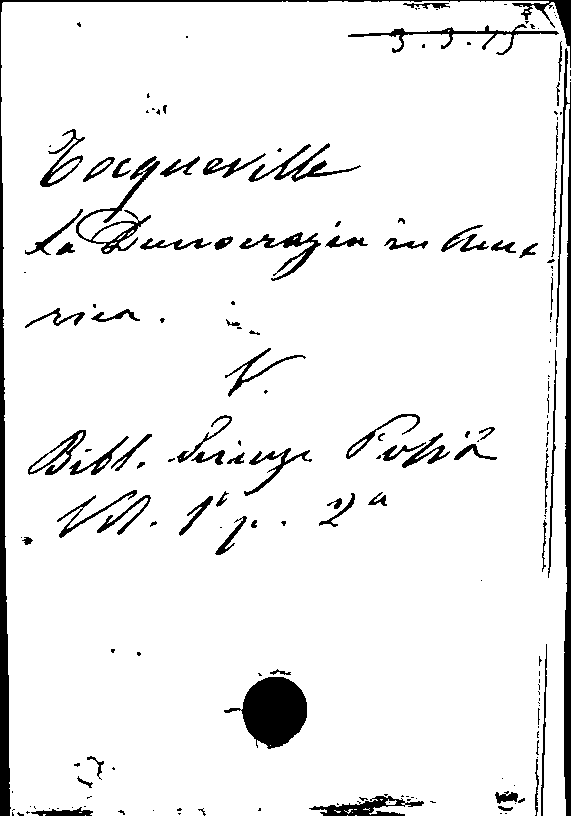 3.3.15
Tocqueville
La Democrazia in Ame-
rica.
V.
Bibl. Scienze Polit.
Vol. 1° p. 2a